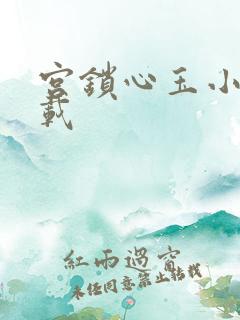 宮鎖心玉小
載
紅雨過窗
未經同意禁止轉載